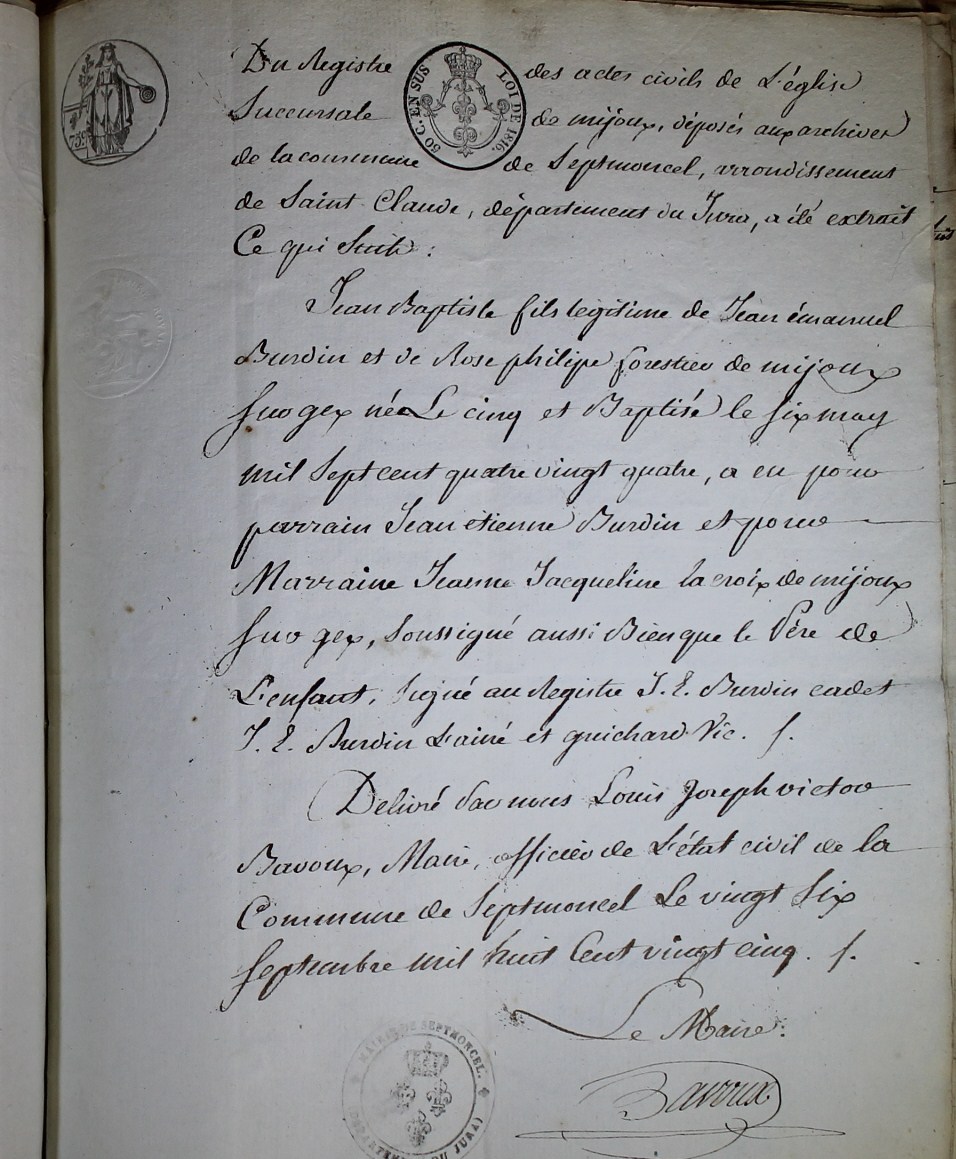 Du Registre des actes civils de L'église
Succursale de mijoux, déposés aux archives
de la commune de Septmoncel, arrondissement
de Saint Claude, département du Jura, a été extrait
Ce qui Suit :
Jean Baptiste fils legitime de Jean émanuel
Burdin et de Rose philipe forestier de mijoux
sur gex née Le cinq et Baptisé le six may
mil Sept cent quatre vingt quatre, a eu pour
parrain Jean étienne Burdin et pour
Marraine Jeanne Jacqueline la croix de mijoux
sur gex, Soussigné aussi Bien que le Pére de
L'enfant, signé au Registre J. E. Burdin cadet
J. E. Burdin L'ainé et guichard Vic. /.
Délivré par nous Louis Joseph victor
Bavoux, Maire, officier de L'état civil de la
Commune de Septmoncel Le vingt Six
Septembre mil huit Cent vingt cinq. /.
Le Maire :
Bavoux
50 C. EN SUS
LOI DE 1816.
75c
MAIRIE DE SEPTMONCEL.
DÉPARTEMENT DU JURA